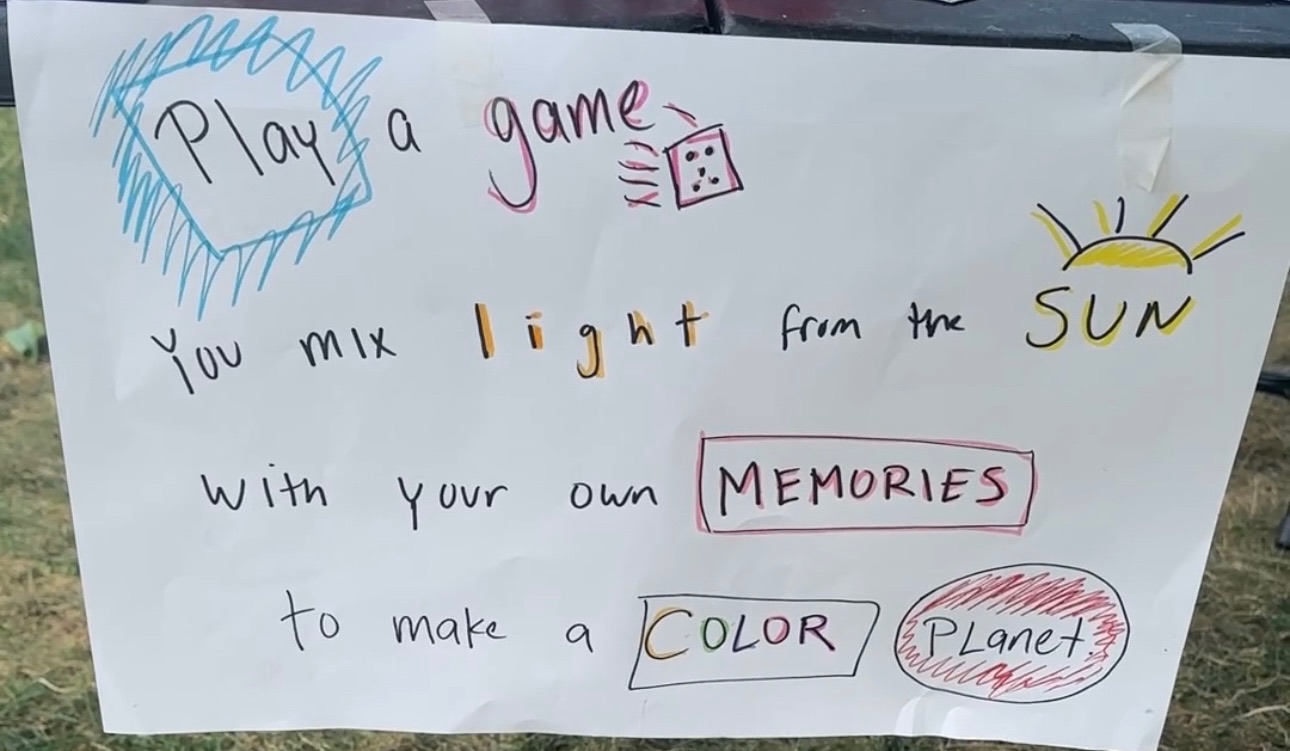 Play a game
You mix light from the SUN
with your own MEMORIES
to make a COLOR PLanet.